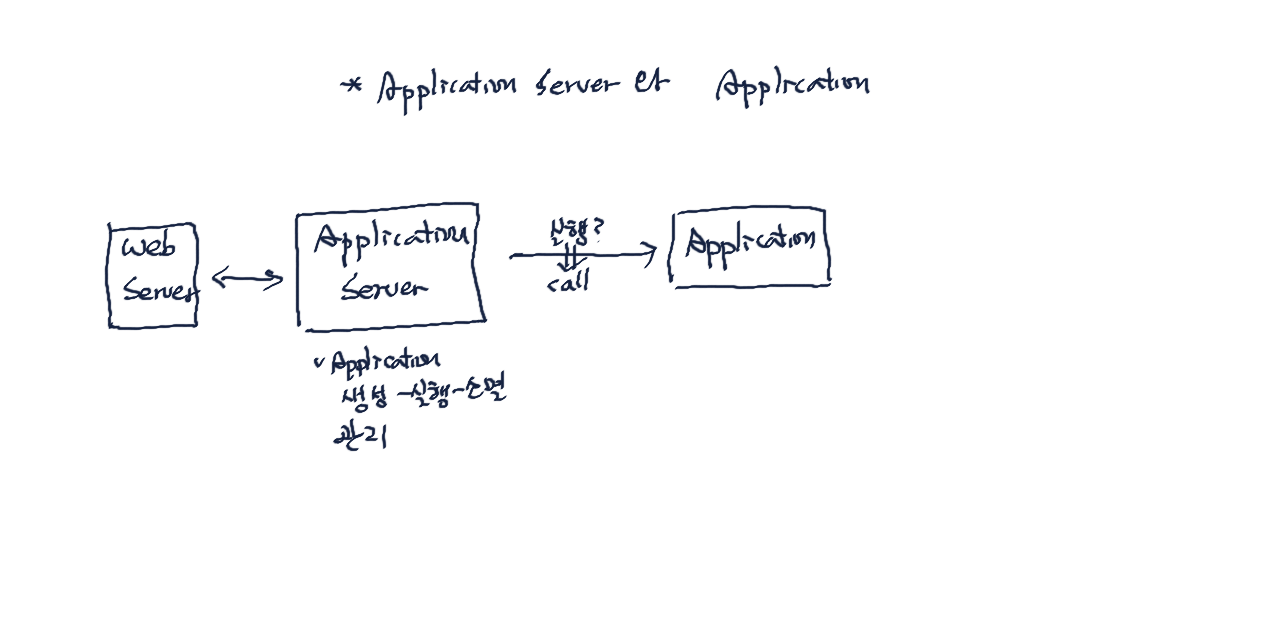 * Application Server 와 Application
Web
Server
Application
Server
실행?
call
Application
✓ Application
생성 - 실행 - 소멸
관리